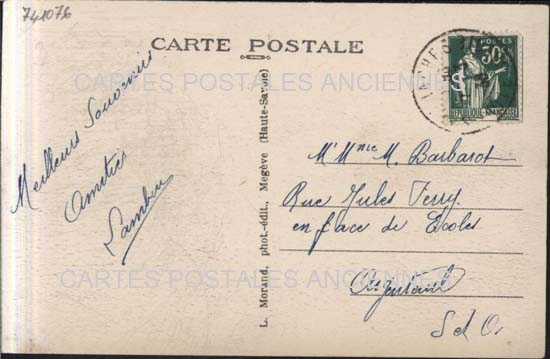 741076
CARTE POSTALE
CARTES POSTALES ANCIENNES
Meilleurs Souvenirs
Amitiés
L. Morand, phot.-édit., Megève (Haute-Savoie)
POSTES
30c
REPUBLIQUE FRANÇAISE
M. Mme M. Barbarot
Rue Jules Ferry
en face de Ecoles
CARTES POSTALES ANCIENNES
Argenteuil
S et O